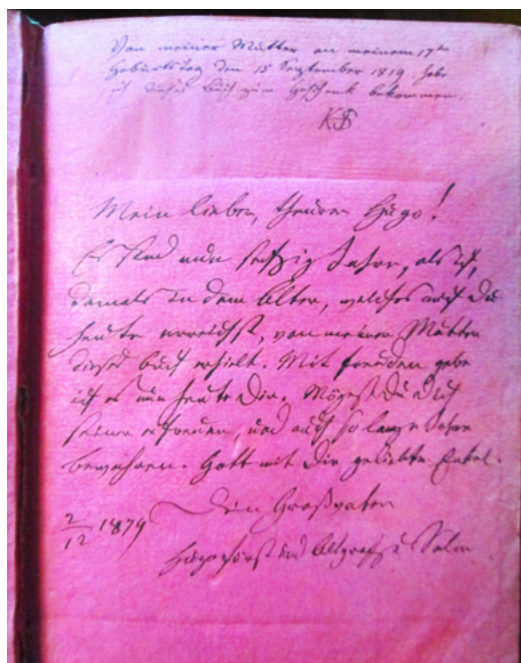 Von meiner Mutter an meinem 17ten
Geburtstag den 15 September 1819 habe
ich dieses Buch zum Geschenk bekommen.
Mein lieber, theurer Hugo!
Es sind nun sechzig Jahre, als ich,
damals in dem Alter, welches auch Du
heute erreichst, von meiner Mutter
dieses Buch erhielt. Mit Freuden gebe
ich es nun heute Dir. Mögest Du Dich
seiner erfreuen, und auch so lange Jahre
bewahren. Gott mit Dir geliebter Enkel.
Dein Großvater
2/12 1879
Hugo Fürst und Altgraf zu Salm